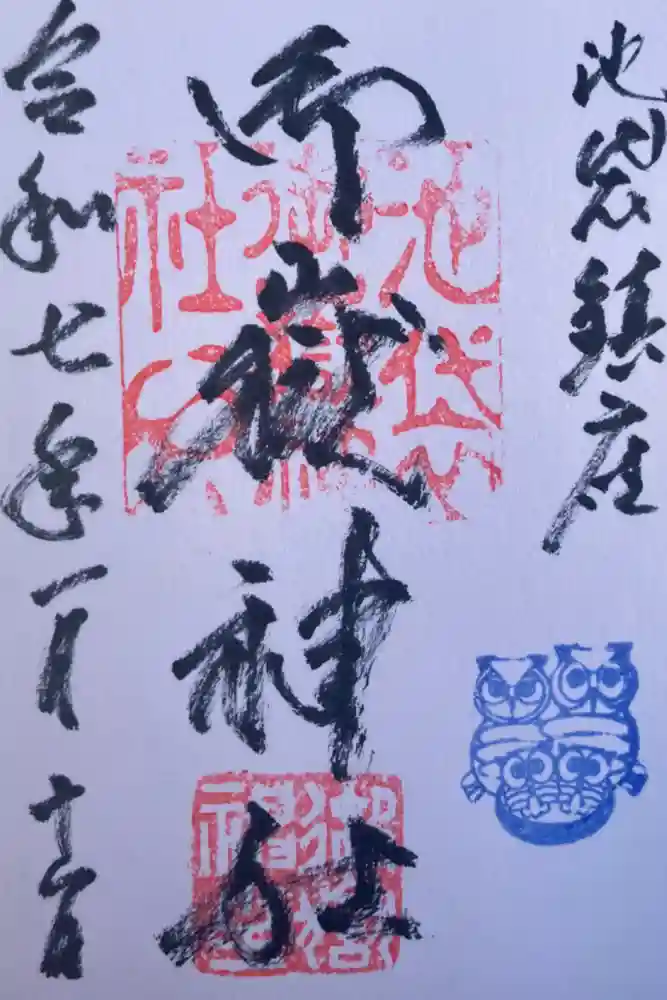 池袋鎮座
御嶽神社
令和七年一月十六日
池袋
御嶽神
社